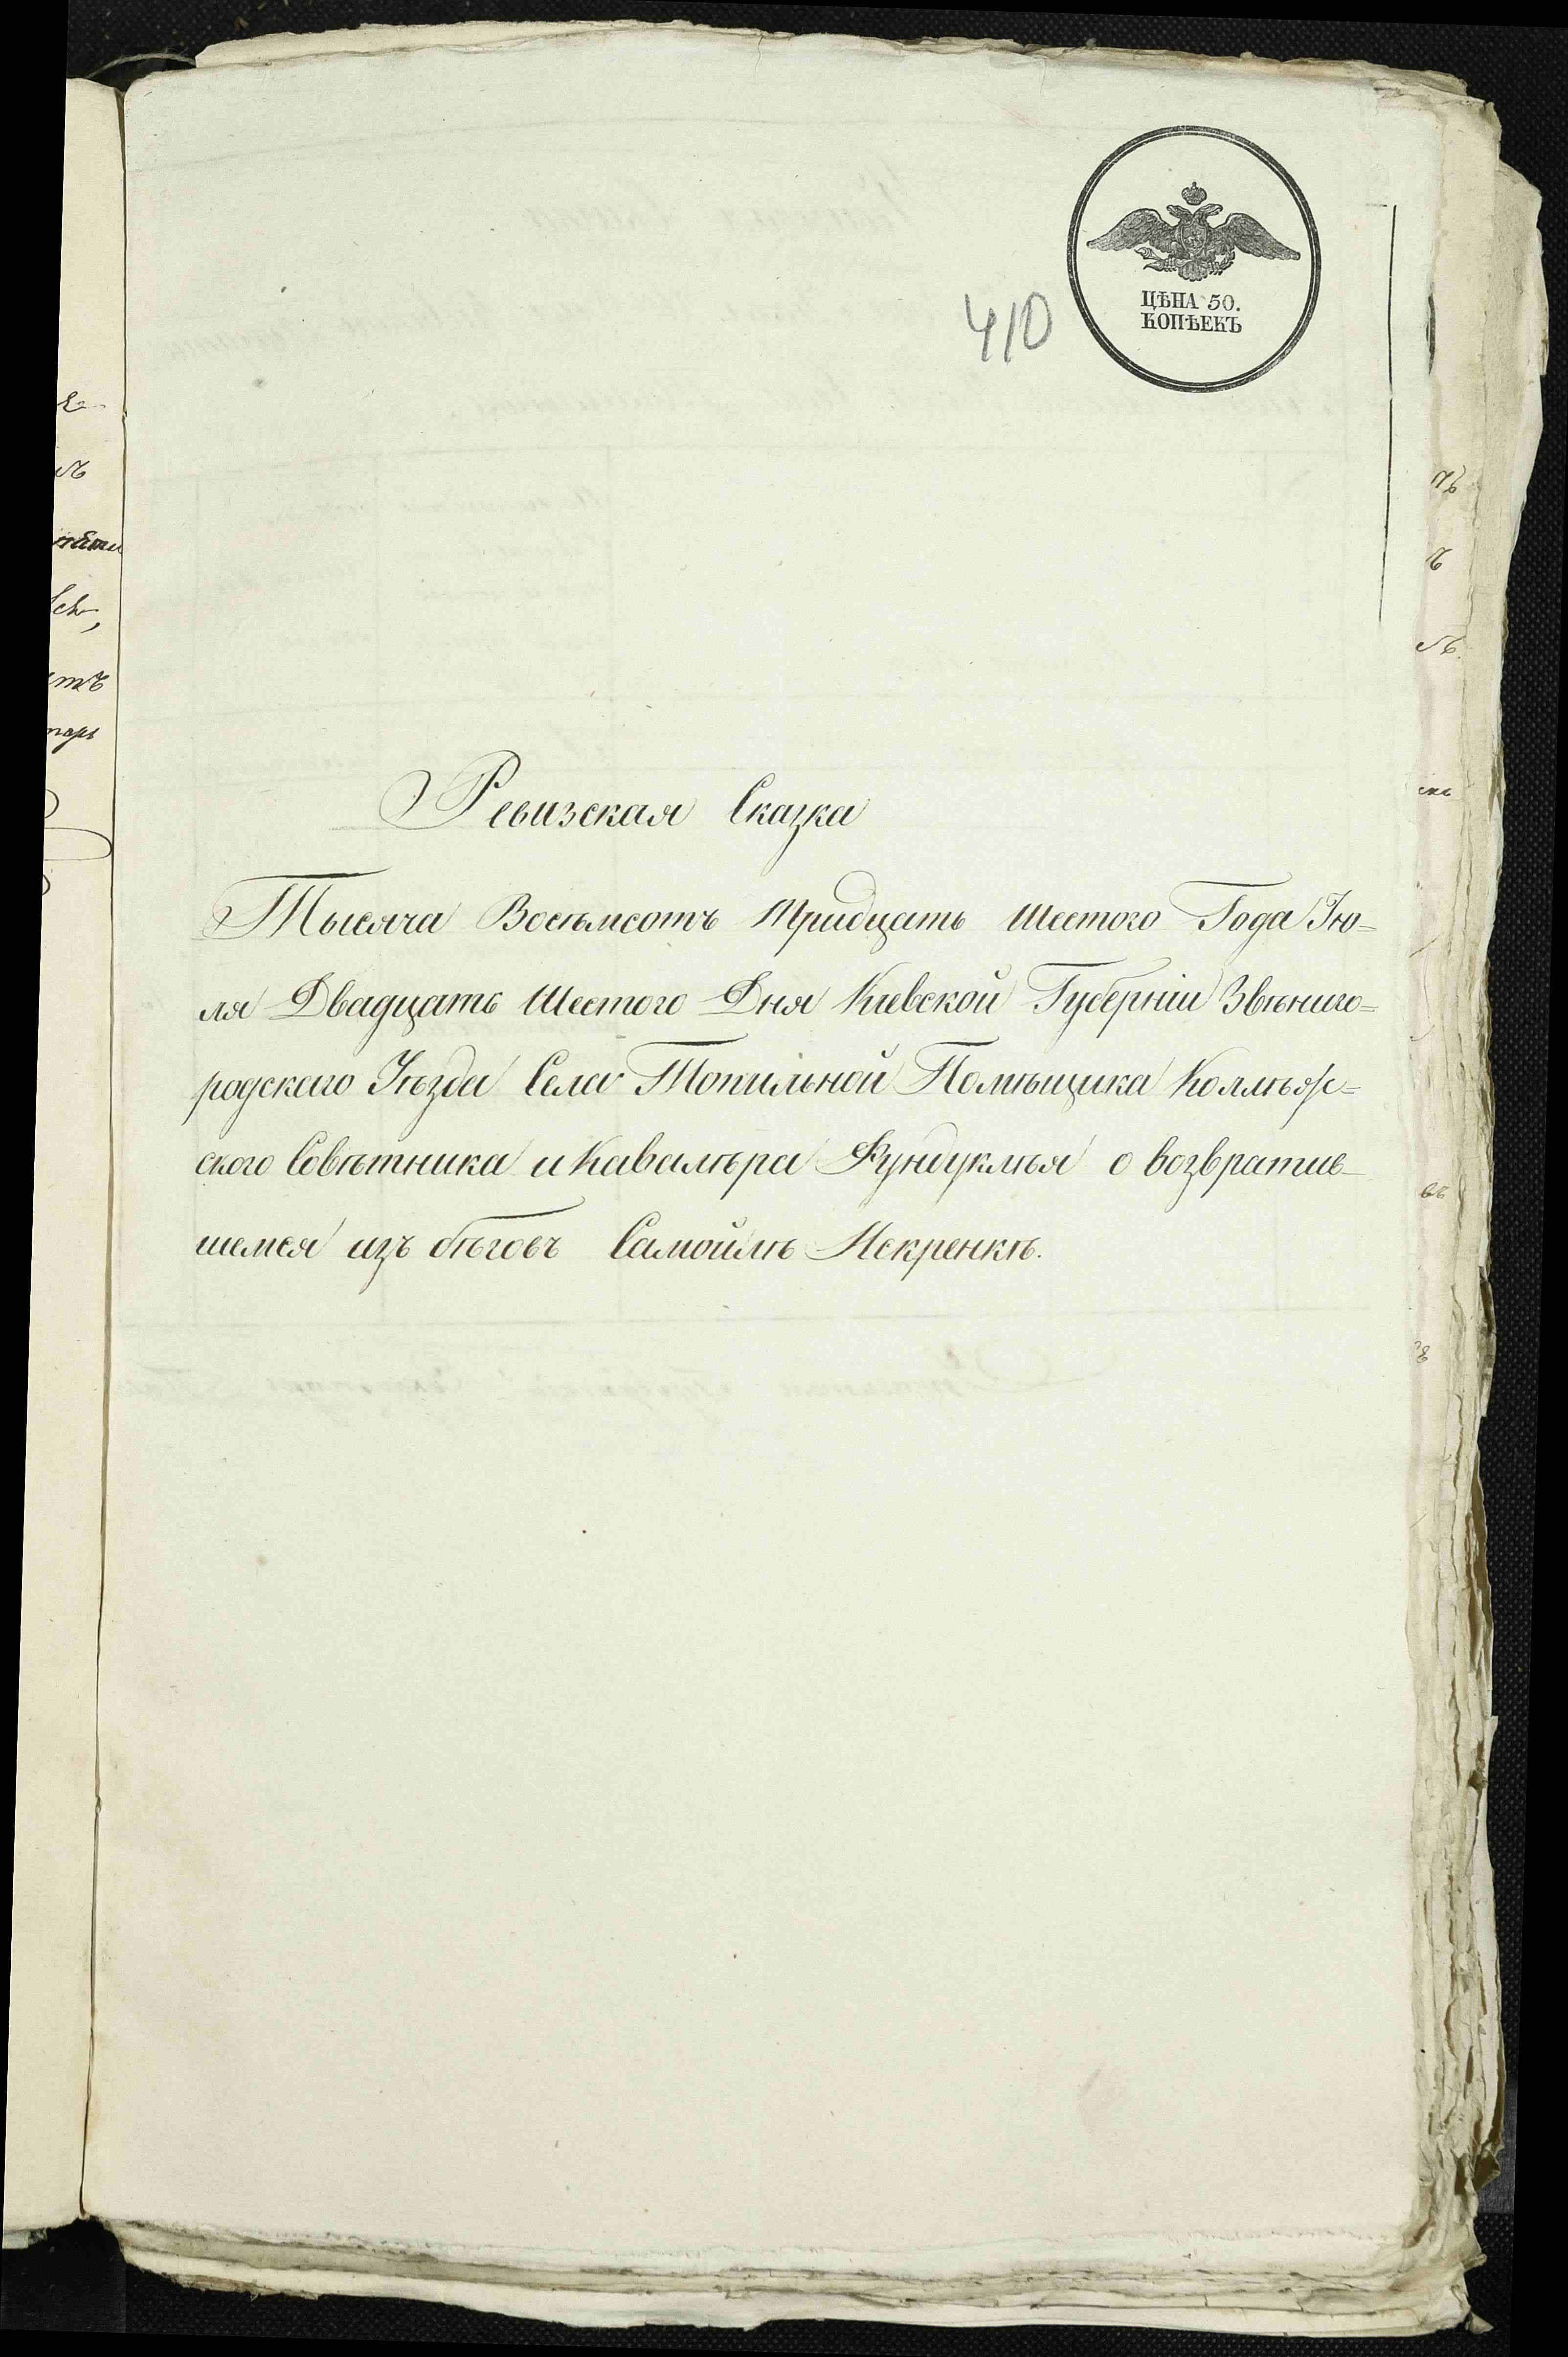 410
ЦѢНА 50.
КОПѢЕКЪ
Ревизская Сказка
Тысяча Восемьсотъ Тридцать Шестого Года Ію=
ля Двадцать Шестого Дня Кіевской Губерніи Звѣниго=
родского Уѣзда Села Топильной Помѣщика Коллѣжс=
ского Совѣтника и Кавалѣра Фундуклѣя о возвратив-
шемся изъ бѣговъ Самойлѣ Искренкѣ.